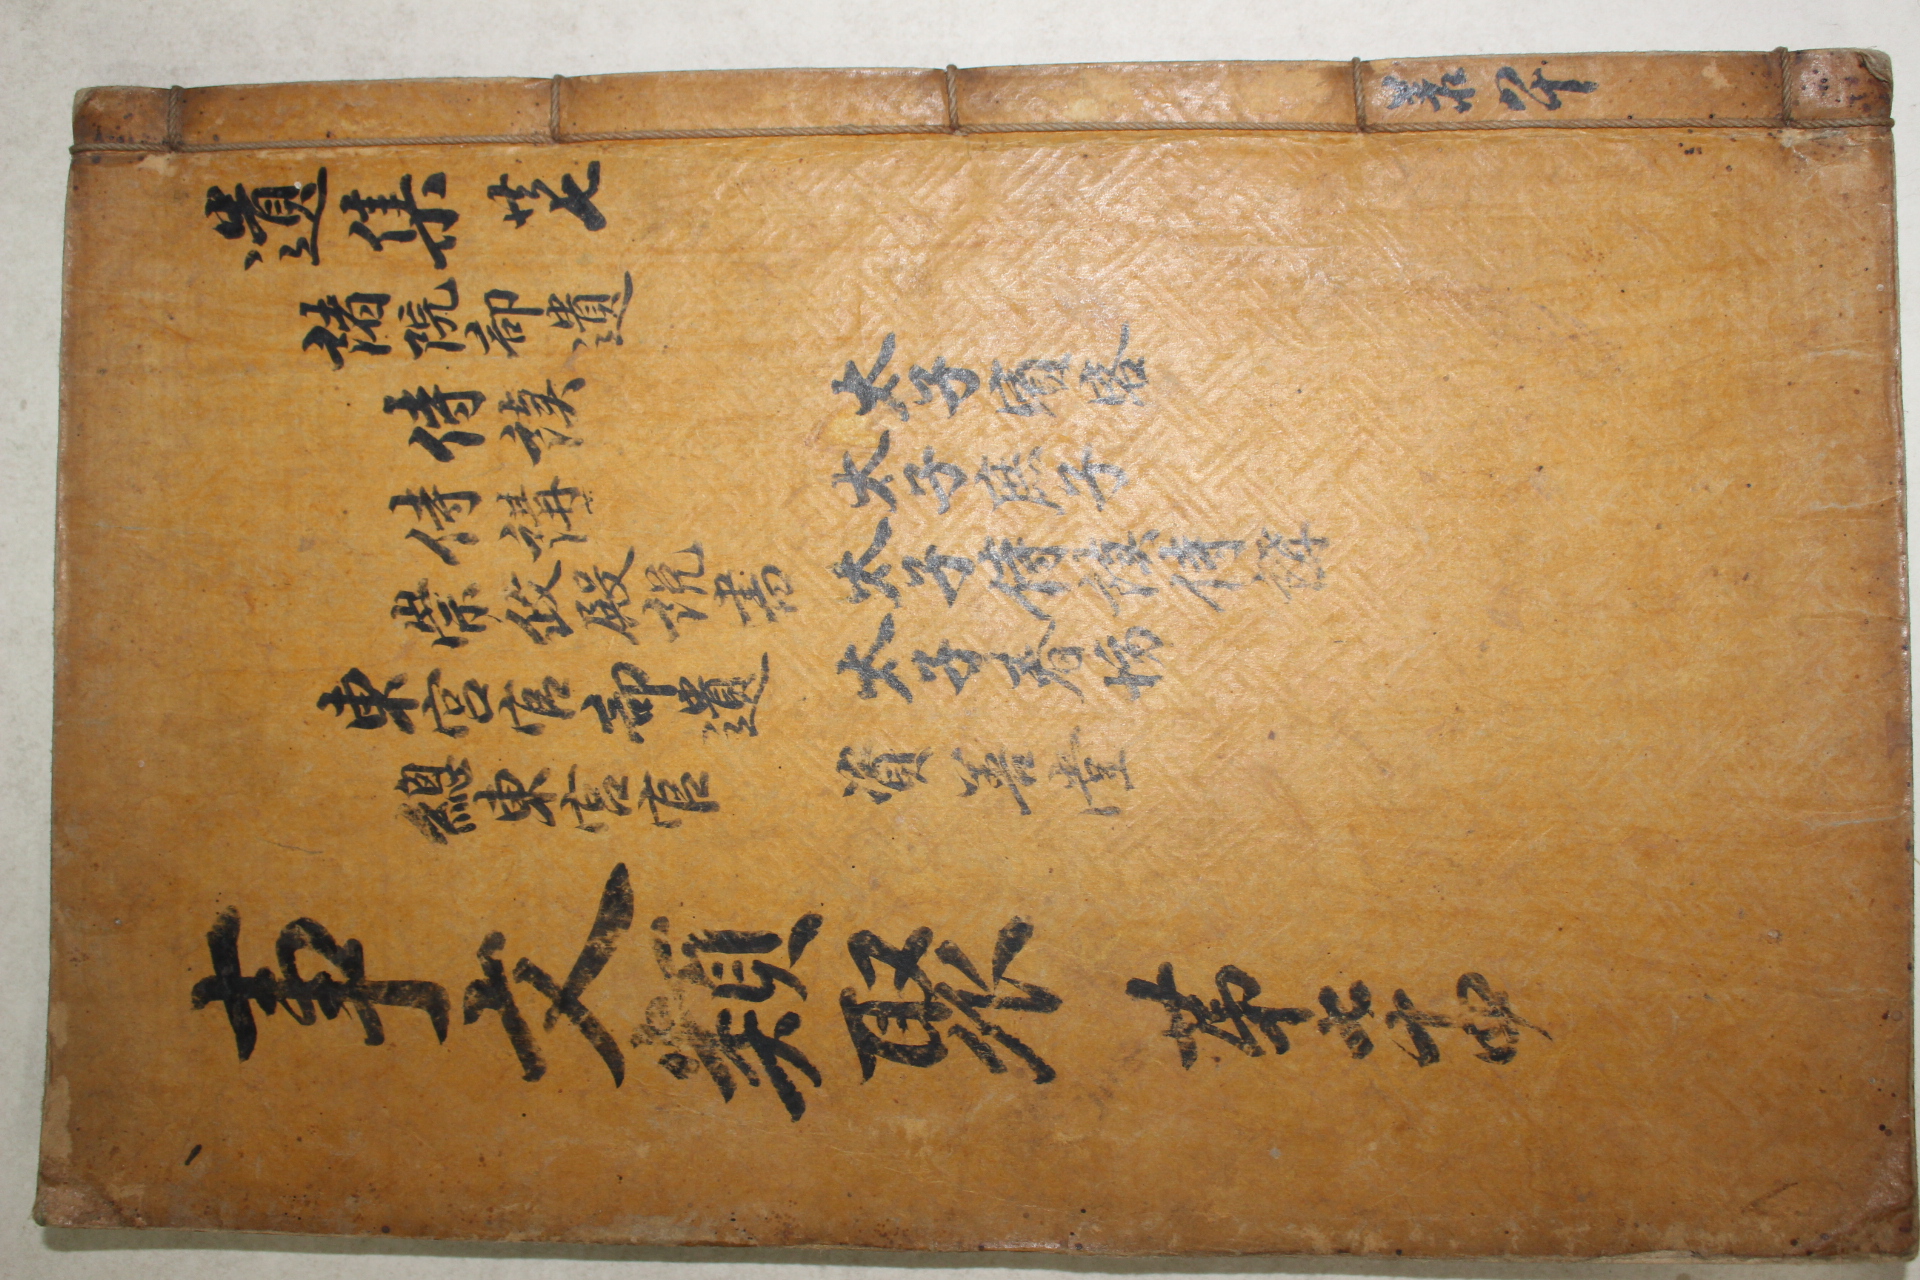 遺集 廿七
諸院部遺
侍讀
侍講
崇政殿説書
東宮官部遺
總東宮官
太子賓客
太子庶子
太子侍讀侍講
太子春坊
資善堂
事文類聚 苐七十四
共八十